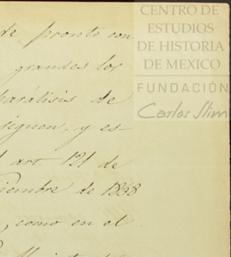 CENTRO DE
ESTUDIOS
DE HISTORIA
DE MEXICO
FUNDACIÓN
Carlos Slim
de pronto con
grandes los
parálisis de
siguen, y es-
art 121 de
ciembre de 1838
, como en el